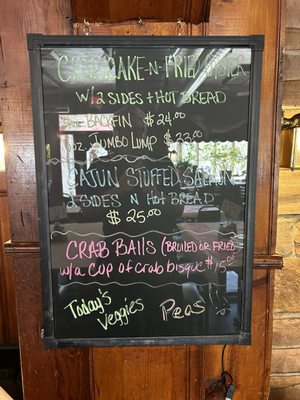 CRABCAKE-N-FRIED OYSTER
W/2 SIDES + HOT BREAD
BACKFIN $24.00
oz JUMBO LUMP $33.00
CAJUN STUFFED SALMON
2 SIDES N HOT BREAD
$25.00
CRAB BALLS (BROILED OR FRIED
w/a CUP OF crab bisque $15.00
Today's
Veggies
Peas!!!